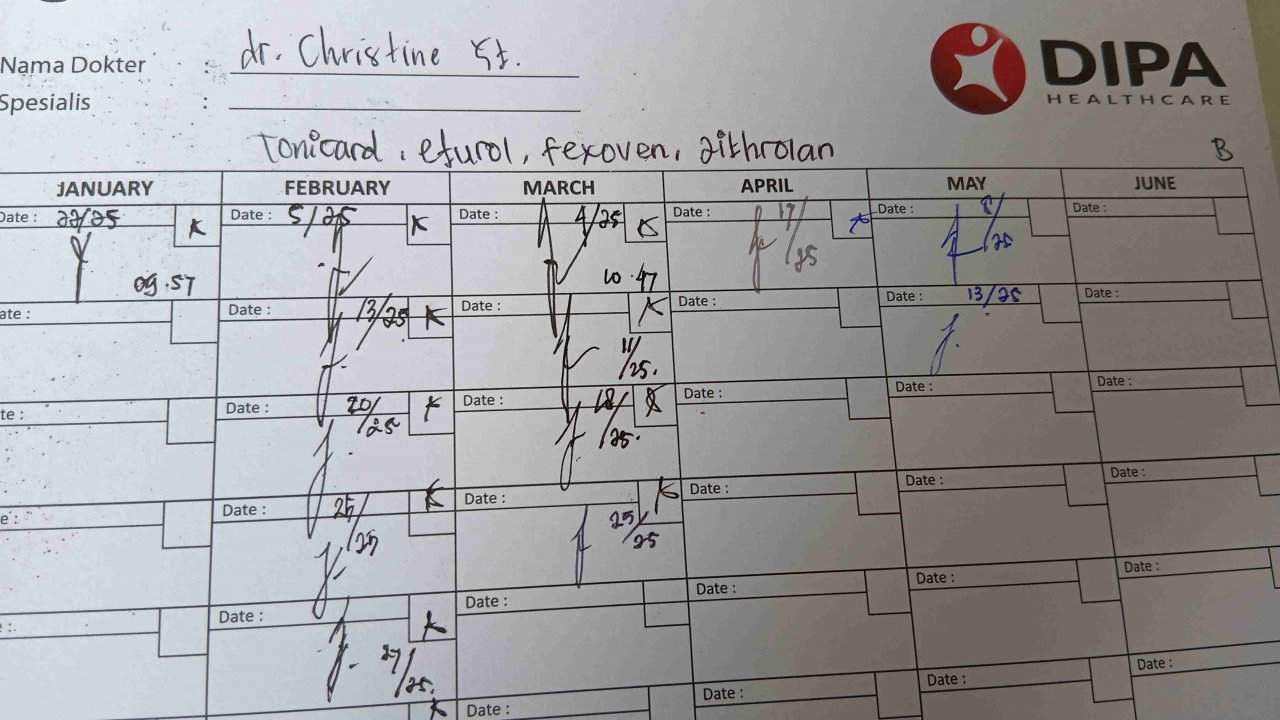 Nama Dokter : dr. Christine
Spesialis :
DIPA
HEALTHCARE
Tonicard, efurol, fexoven, zithrolan
B
JANUARY FEBRUARY MARCH APRIL MAY JUNE
Date : 22/25 K Date : 5/25 K Date : 4/25 K Date : 17/25 K Date : 8/25 Date :
09.57 10.47
ate : Date : 13/25 K Date : K 11/25. Date : Date : 13/25 Date :
te : Date : 20/25 K Date : 18/25. K Date : Date : Date :
e : Date : 25/25 K Date : 25/25 K Date : Date : Date :
: Date : 27/25. K Date : Date : Date : Date :
K Date : Date : Date : Date :